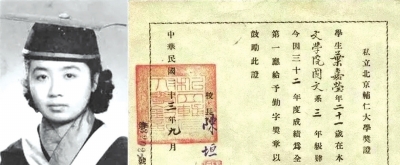 私立北京輔仁大學獎證
學生葉嘉瑩年二十一歲在本
文學院國文系三年級肄
今因三十二年度成績為全
第一應給予勤字獎章以
鼓勵此證
校長陳垣
中華民國三十三年九月